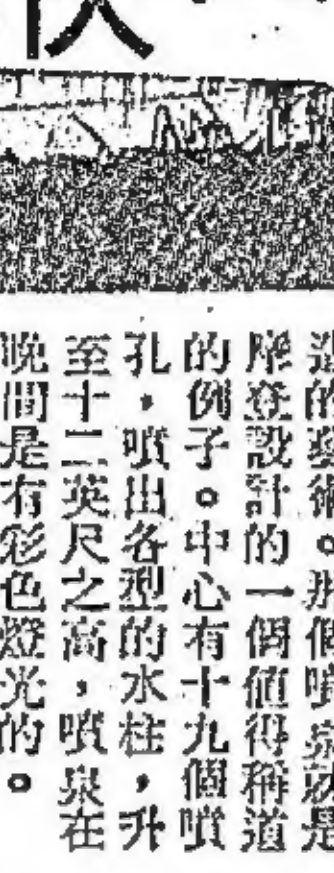 的藝術。那個噴泉就是
摩登設計的一個值得稱道
的例子。中心有十九個噴
孔，噴出各型的水柱，升
至十二英尺之高，噴泉在
晚間是有彩色燈光的。